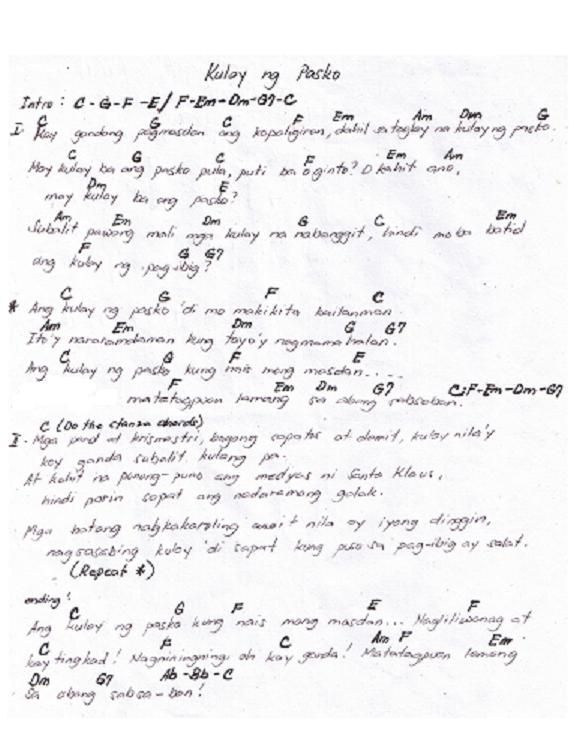 Kulay ng Pasko
Intro : C - G - F - E / F - Em - Dm - G7 - C
C G C F Em Am Dm G
I. Kay gandang pagmasdan ang kapaligiran, dahil sa taglay na kulay ng pasko.
C G C F Em Am
May kulay ba ang pasko pula, puti ba o ginto? O kahit ano,
Dm E
may kulay ba ang pasko?
Am Em Dm G C Em
Subalit pawang mali mga kulay na nabanggit, hindi mo ba batid
F G G7
ang kulay ng pag-ibig?
C G F C
* Ang kulay ng pasko 'di mo makikita kailanman.
Am Em Dm G G7
Ito'y nararamdaman kung tayo'y nagmamahalan.
C G F E
Ang kulay ng pasko kung nais mong masdan.....
F Em Dm G7 C;F-Em-Dm-G7
matatagpuan lamang sa abang sabsaban..
C (Do the stanza chords)
II. Mga parol at krismastri, bagong sapatos at damit, kulay nila'y
kay ganda subalit kulang pa.
At kahit na punung-puno ang medyas ni Santa Klaus,
hindi parin sapat ang nadaramang galak.
Mga batang nagkakaroling awit nila ay iyong dinggin,
nagsasabing kulay 'di sapat kung puso sa pag-ibig ay salat.
(Repeat *)
ending:
C G F E F
Ang kulay ng pasko kung nais mong masdan... Nagliliwanag at
C F C Am F Em
kay tingkad! Nagniningning, oh kay ganda! Matatagpuan lamang
Dm G7 Ab - Bb - C
sa abang sabsa-ban!